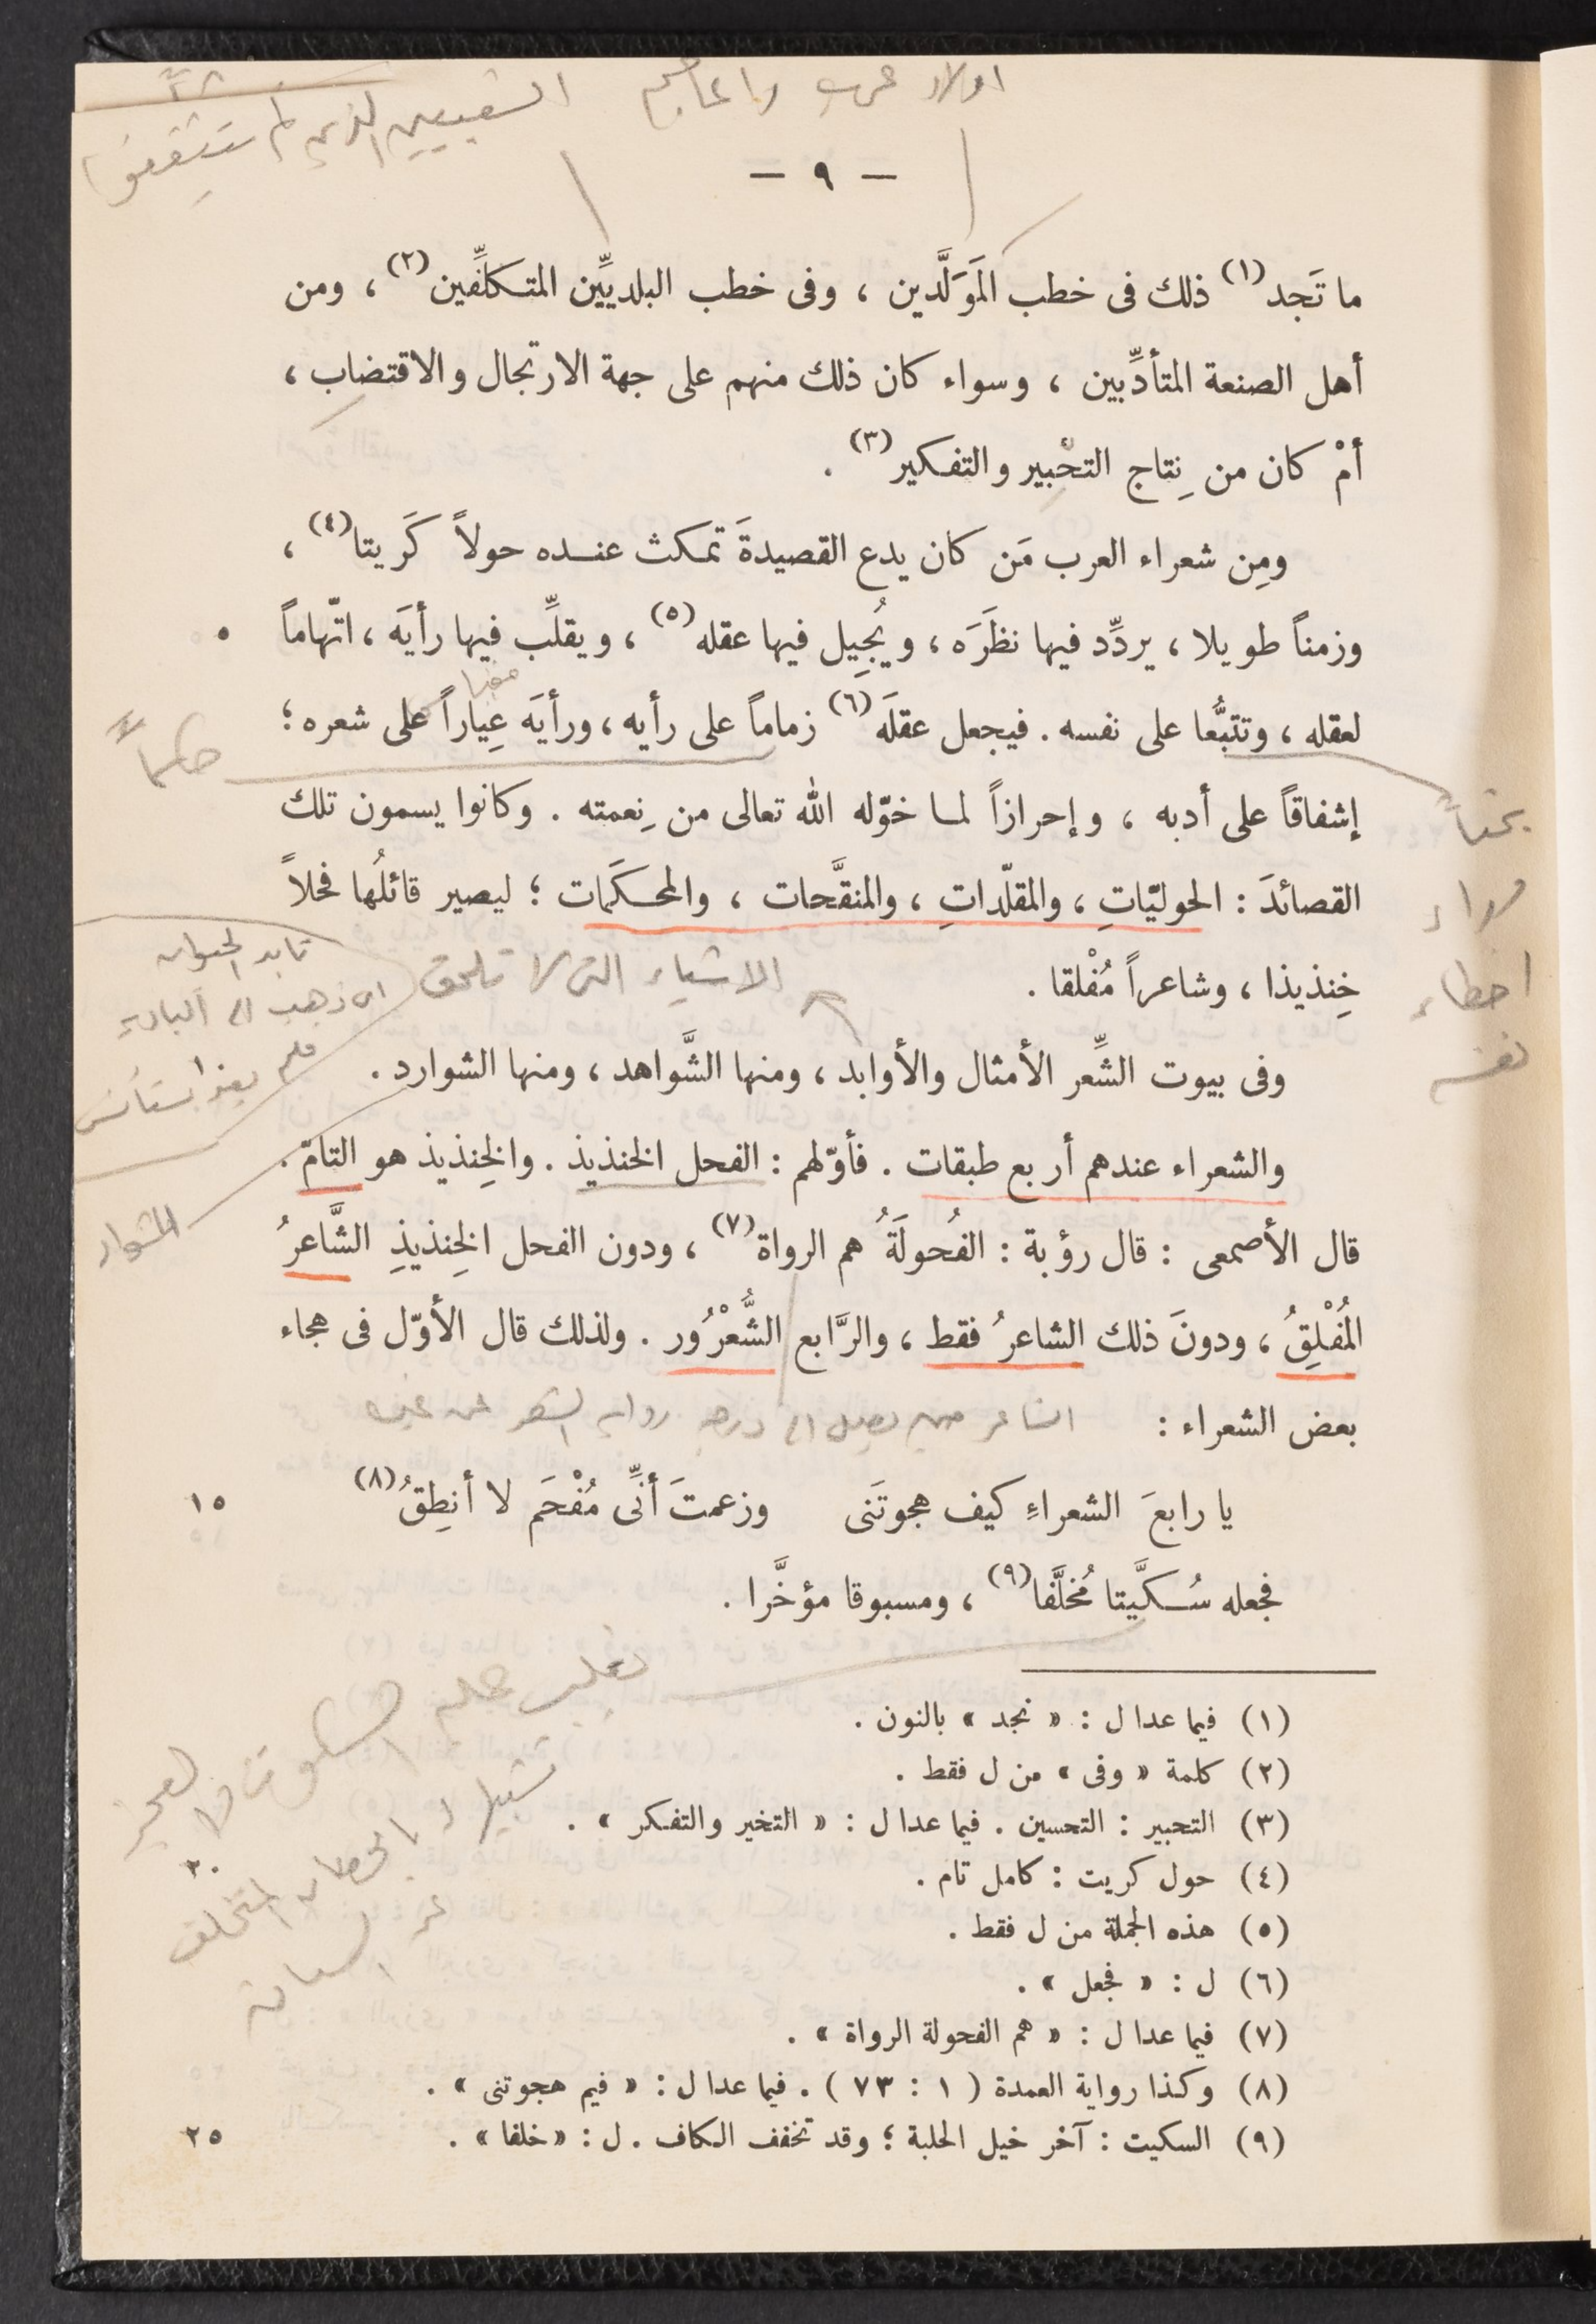 اولاد عرب واعاجم
الشعبيين الذين لم يتثقفوا
— ٩ —
ما تَجد(١) ذلك فى خطب المَوَلَّدين ، وفى خطب البلديِّين المتكلِّفين(٢) ، ومن
أهل الصنعة المتأدِّبين ، وسواء كان ذلك منهم على جهة الارتجال والاقتضاب ،
أمْ كان من نِتاج التحْبير والتفكير(٣) .
ومِن شعراء العرب مَن كان يدع القصيدةَ تمكث عنده حولاً كَريتا(٤) ،
وزمناً طويلا ، يردِّد فيها نظرَه ، ويُجِيل فيها عقله(٥) ، ويقلِّب فيها رأيَه ، اتّهاماً ٥
لعقله ، وتتبُّعا على نفسه . فيجعل عقلَه(٦) زماماً على رأيه ، ورأيَه عِياراً على شعره ؛
حاكماً
إشفاقاً على أدبه ، وإحرازاً لما خوّله الله تعالى من نِعمته . وكانوا يسمون تلك
القصائدَ : الحوليّاتِ ، والمقلّداتِ ، والمنقَّحات ، والمحكَمات ؛ ليصير قائلُها فحلاً
وراء
اخطاء
نفسه
خِنذيذا ، وشاعراً مُفْلقا .
الاشياء التى لا تلحق
تابد الحيوان
اى ذهب الى البادية
فلم يعد يستأنس
وفى بيوت الشِّعر الأمثال والأوابد ، ومنها الشَّواهد ، ومنها الشوارد .
والشعراء عندهم أربع طبقات . فأوّلهم : الفحل الخنذيذ . والخِنذيذ هو التامّ .
قال الأصمعى : قال رؤبة : الفُحولَةُ هم الرواة(٧) ، ودون الفحل الخِنذيذِ الشَّاعرُ
المُفْلِقُ ، ودونَ ذلك الشاعرُ فقط ، والرَّابع الشُّعْرُور . ولذلك قال الأوّل فى هجاء
بعض الشعراء :
الشاعر حين يصل الى درجة رواية الشعر عن غيره
يا رابعَ الشعراءِ كيف هجوتَنى وزعمتَ أنِّى مُفْحَم لا أنطِقُ(٨) ١٥
فجعله سُكَّيتا مُخلَّفا(٩) ، ومسبوقا مؤخَّرا .
يغلب عليه السكوت والعجز
تشبيها له بالحصان المتخلف
عن السباق
(١) فيما عدا ل : « نجد » بالنون .
(٢) كلمة « وفى » من ل فقط .
(٣) التحبير : التحسين . فيما عدا ل : « التخير والتفكر » .
(٤) حول كريت : كامل تام . ٢٠
(٥) هذه الجملة من ل فقط .
(٦) ل : « فجعل » .
(٧) فيما عدا ل : « هم الفحولة الرواة » .
(٨) وكذا رواية العمدة ( ١ : ٧٣ ) . فيما عدا ل : « فيم هجوتنى » .
(٩) السكيت : آخر خيل الحلبة ؛ وقد تخفف الكاف . ل : « خلفا » . ٢٥